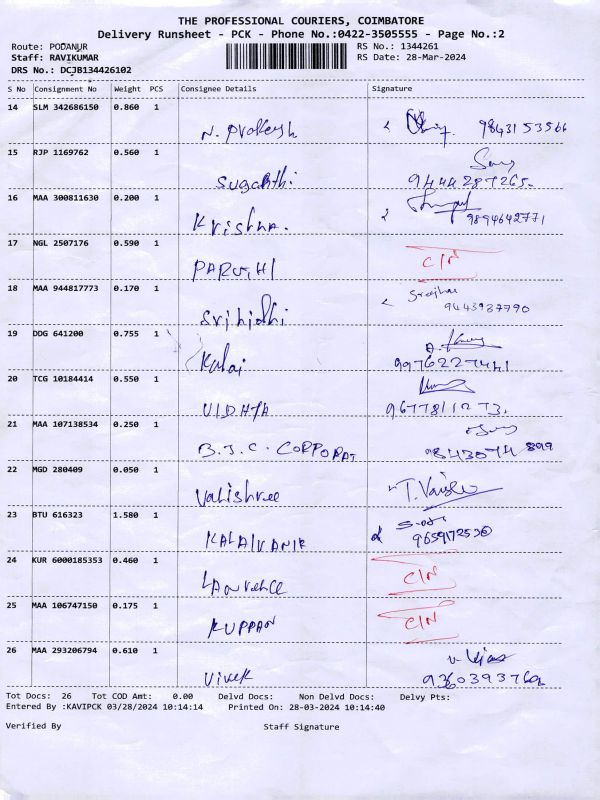 THE PROFESSIONAL COURIERS, COIMBATORE
Delivery Runsheet - PCK - Phone No.:0422-3505555 - Page No.:2
Route: PODANUR RS No.: 1344261
Staff: RAVIKUMAR RS Date: 28-Mar-2024
DRS No.: DCJB134426102
S No Consignment No Weight PCS Consignee Details Signature
14 SLM 342686150 0.860 1
N. Prakash 9843153566
15 RJP 1169762 0.560 1
Suganthi 9444287265.
16 MAA 300811630 0.200 1
Krishna. 9894642771
17 NGL 2507176 0.590 1
C/N
18 MAA 944817773 0.170 1
Srinidhi 9443987790
19 DDG 641200 0.755 1
Kalai 9976227441
20 TCG 10184414 0.550 1
VIDHYA 9677811273.
21 MAA 107138534 0.250 1
B.J.C. CORPORAT 843074 899
22 MGD 280409 0.050 1
Valishree T.
23 BTU 616323 1.580 1
KALAIVANIR
24 KUR 6000185353 0.460 1
LAWRENCE C/N
25 MAA 106747150 0.175 1
KUPPAN C/N
26 MAA 293206794 0.610 1
Vivek
Tot Docs: 26 Tot COD Amt: 0.00 Delvd Docs: Non Delvd Docs: Delvy Pts:
Entered By :KAVIPCK 03/28/2024 10:14:14 Printed On: 28-03-2024 10:14:40
Verified By Staff Signature